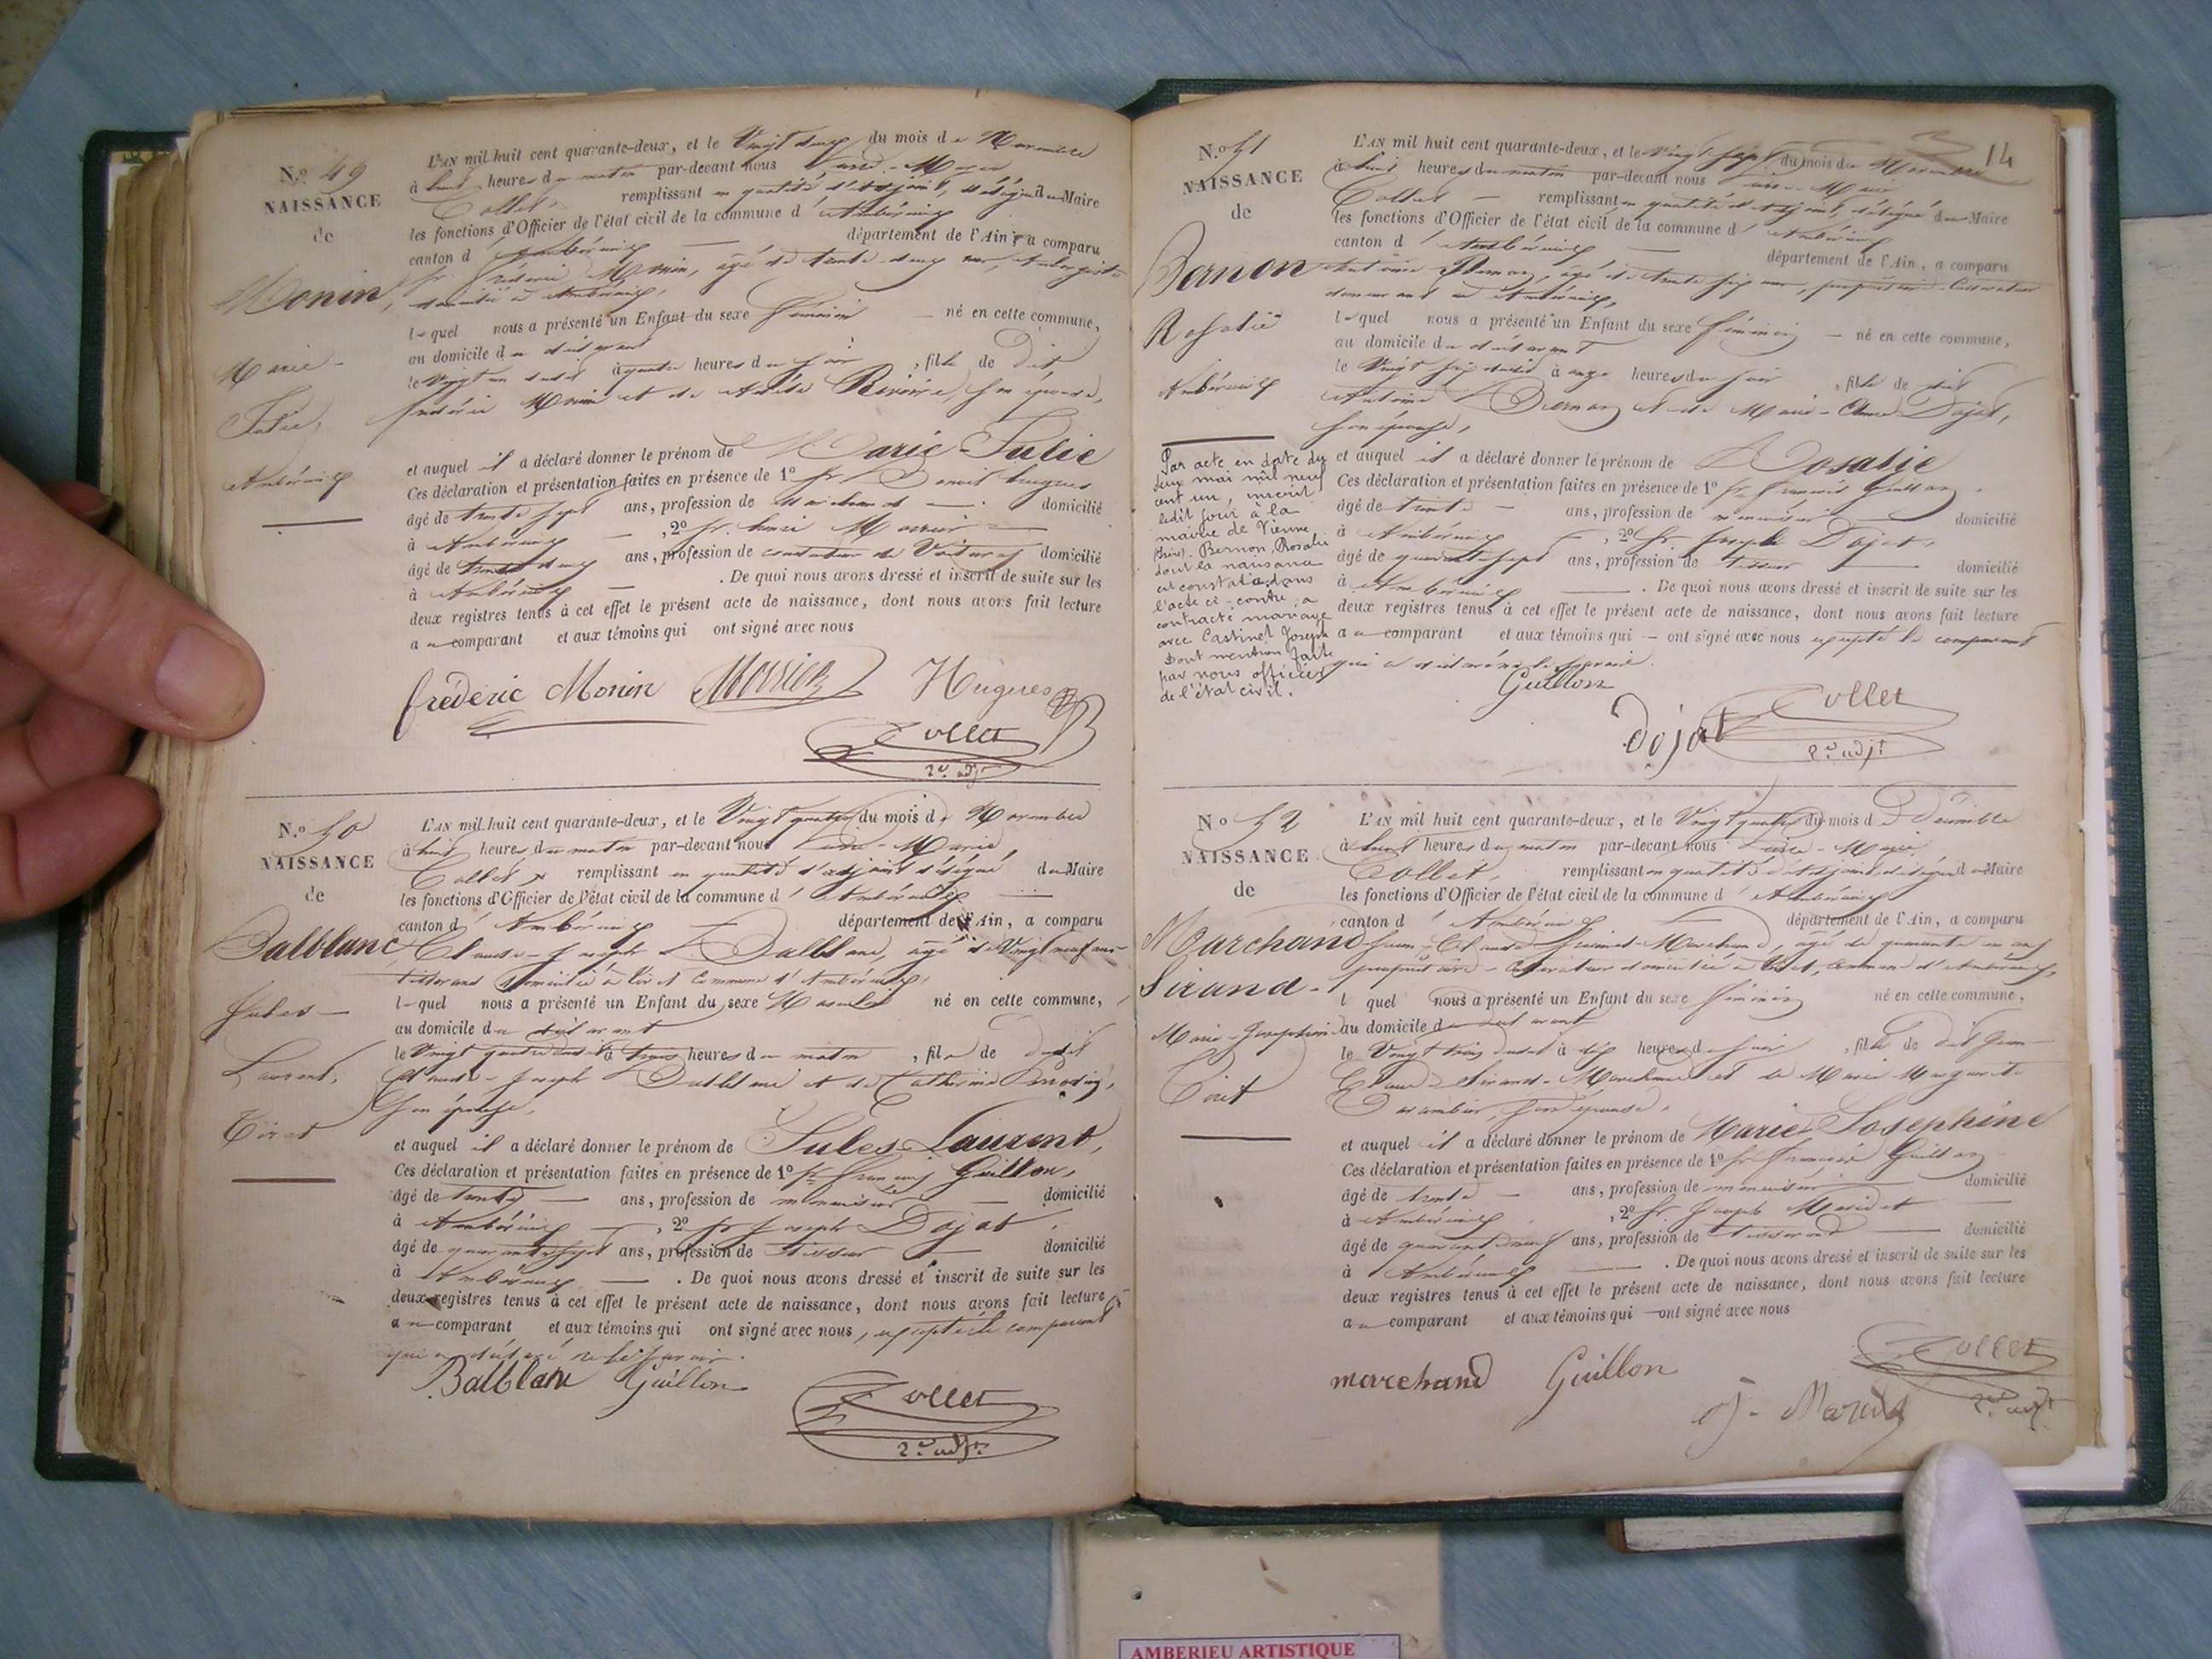 N.o 49
NAISSANCE
de
Monin
Marie-
Julie,
Ambérieux
L'AN mil huit cent quarante-deux, et le Vingt deux du mois de Novembre
à huit heures du matin par-devant nous André-Marie
Collet, remplissant en qualité d'adjoint, délégué du Maire
les fonctions d'Officier de l'état civil de la commune d'Ambérieux
canton d'Ambérieux — département de l'Ain, a comparu
Sr. Fréderic Monin, agé de trente-deux ans, Aubergiste
domicilié à Ambérieux,
lequel nous a présenté un Enfant du sexe féminin — né en cette commune,
au domicile du déclarant
le Vingt un dudit à quatre heures du soir, fille de dit
fréderic Monin et de Rivoire, son épouse,
et auquel il a déclaré donner le prénom de Marie-Julie
Ces déclaration et présentation faites en présence de 1o Sr. Benoit hugues
âgé de trente sept ans, profession de marchand — domicilié
à Ambérieux — , 2o Sr.
âgé de trente deux ans, profession de conducteur de Voitures domicilié
à Ambérieux — . De quoi nous avons dressé et inscrit de suite sur les
deux registres tenus à cet effet le présent acte de naissance, dont nous avons fait lecture
au comparant et aux témoins qui ont signé avec nous
fréderic Monin Hugues
Collet
2e. adjt
N.o 50
NAISSANCE
de
Balblanc
Jules-
Laurent,
Tiret
L'AN mil huit cent quarante-deux, et le Vingt quatre du mois de Novembre
à huit heures du matin par-devant nous André-Marie
Collet, remplissant en qualité d'adjoint délégué du Maire
les fonctions d'Officier de l'état civil de la commune d'Ambérieux
canton d'Ambérieux — département de l'Ain, a comparu
Claude-Joseph Balblanc, agé de Vingt neuf ans
tisserand domicilié à Tiret commune d'Ambérieux,
lequel nous a présenté un Enfant du sexe Masculin né en cette commune,
au domicile du déclarant
le Vingt quatre dudit à trois heures du matin, fils de dudit
Claude-Joseph Balblanc et de Catherine
son épouse,
et auquel il a déclaré donner le prénom de Jules-Laurent,
Ces déclaration et présentation faites en présence de 1o Sr. François Guillon,
âgé de trente — ans, profession de menuisier — domicilié
à Ambérieux — , 2o Sr Joseph Dojat,
âgé de quarante sept ans, profession de tisseur — domicilié
à Ambérieux — . De quoi nous avons dressé et inscrit de suite sur les
deux registres tenus à cet effet le présent acte de naissance, dont nous avons fait lecture
au comparant et aux témoins qui ont signé avec nous, excepté le comparant
qui a déclaré ne le savoir.
Balblanc Guillon
Collet
2e. adjt
14
N.o 51
NAISSANCE
de
Bernon
Rosalie
Ambérieux
Par acte en date du
deux mai mil neuf
cent un, inscrit
ledit jour à la
mairie de Vienne
(Isère). Bernon, Rosalie
dont la naissance
est constatée dans
l'acte ci-contre, a
contracté mariage
avec Castinel Joseph
Dont mention faite
par nous officier
de l'état civil.
L'AN mil huit cent quarante-deux, et le Vingt sept du mois de Novembre
à huit heures du matin par-devant nous André-Marie
Collet — remplissant en qualité d'adjoint, délégué du Maire
les fonctions d'Officier de l'état civil de la commune d'Ambérieux
canton d'Ambérieux — département de l'Ain, a comparu
Antoine Bernon, agé de trente six ans, propriétaire-Cultivateur
demeurant à Ambérieux,
lequel nous a présenté un Enfant du sexe féminin — né en cette commune,
au domicile du déclarant
le Vingt six dudit à onze heures du soir, fille de dit
Antoine Bernon et de Marie-Anne Dojat,
son épouse,
et auquel il a déclaré donner le prénom de Rosalie
Ces déclaration et présentation faites en présence de 1o Sr. François Guillon,
âgé de trente — ans, profession de menuisier — domicilié
à Ambérieux — , 2o Sr Joseph Dojat,
âgé de quarante sept ans, profession de tisseur — domicilié
à Ambérieux — . De quoi nous avons dressé et inscrit de suite sur les
deux registres tenus à cet effet le présent acte de naissance, dont nous avons fait lecture
au comparant et aux témoins qui — ont signé avec nous excepté le comparant
qui a déclaré ne le savoir.
Guillon
Dojat Collet
2e. adjt
N.o 52
NAISSANCE
de
Marchand
Sirand-
Marie-Josephine
Tiret
L'AN mil huit cent quarante-deux, et le Vingt quatre du mois de Décembre
à huit heures du matin par-devant nous André-Marie
Collet, remplissant en qualité d'adjoint, délégué du Maire
les fonctions d'Officier de l'état civil de la commune d'Ambérieux
canton d'Ambérieux — département de l'Ain, a comparu
Jean-Claude Sirand-Marchand, agé de quarante un ans
propriétaire-Cultivateur domicilié à Tiret, commune d'Ambérieux,
lequel nous a présenté un Enfant du sexe féminin né en cette commune,
au domicile du déclarant
le Vingt trois dudit à dix heures du soir, fille de dit Jean-
Claude Sirand-Marchand et de Marie Marguerite
son épouse,
et auquel il a déclaré donner le prénom de Marie-Josephine
Ces déclaration et présentation faites en présence de 1o Sr. François Guillon
âgé de trente — ans, profession de menuisier — domicilié
à Ambérieux , 2o Sr Joseph
âgé de quarante neuf ans, profession de tisserand — domicilié
à Ambérieux — . De quoi nous avons dressé et inscrit de suite sur les
deux registres tenus à cet effet le présent acte de naissance, dont nous avons fait lecture
au comparant et aux témoins qui — ont signé avec nous
marchand Guillon Collet
2e. adjt
AMBERIEU ARTISTIQUE